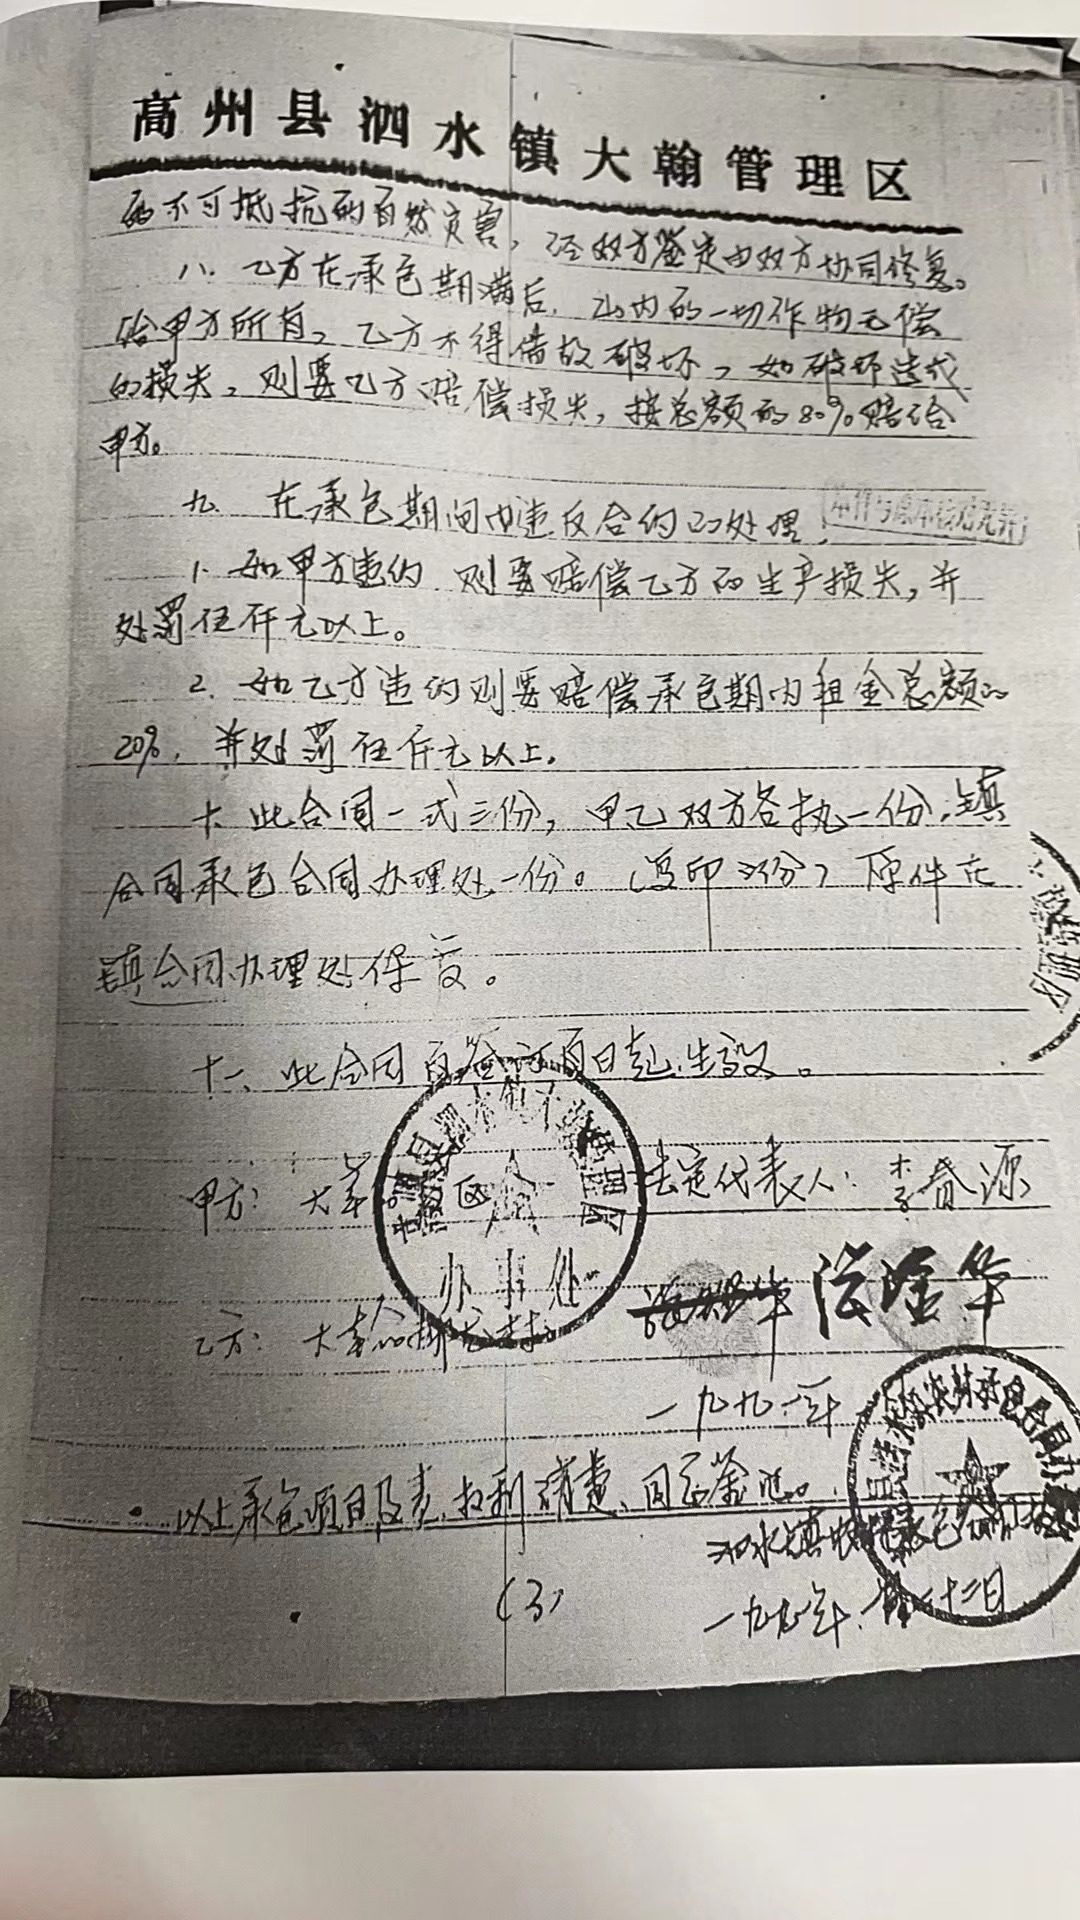 高州县泗水镇大翰管理区
的不可抵抗的自然灾害，经双方鉴定由双方协同修复。
八、乙方在承包期满后，山内的一切作物无偿
给甲方所有，乙方不得借故破坏，如破坏造成
的损失，则要乙方赔偿损失，按总额的80%赔给
甲方。
九、在承包期间内违反合约的处理
本件与原本核对无异
1、如甲方违约 则要赔偿乙方的生产损失，并
处罚伍仟元以上。
2、如乙方违约则要赔偿承包期内租金总额的
20%，并处罚伍仟元以上。
十、此合同一式三份，甲乙双方各执一份，镇
合同承包合同办理处一份。（复印 份）原件在
镇合同办理处保存。
管理区
十一、此合同自签订日起生效。
甲方：大 区 法定代表人：李春源
办事处
乙方：大 村 金华
一九九 年
以上承包项目及责、权利清楚、同意鉴证。
泗水镇 承包合同
（3）
一九九 年 二十二日